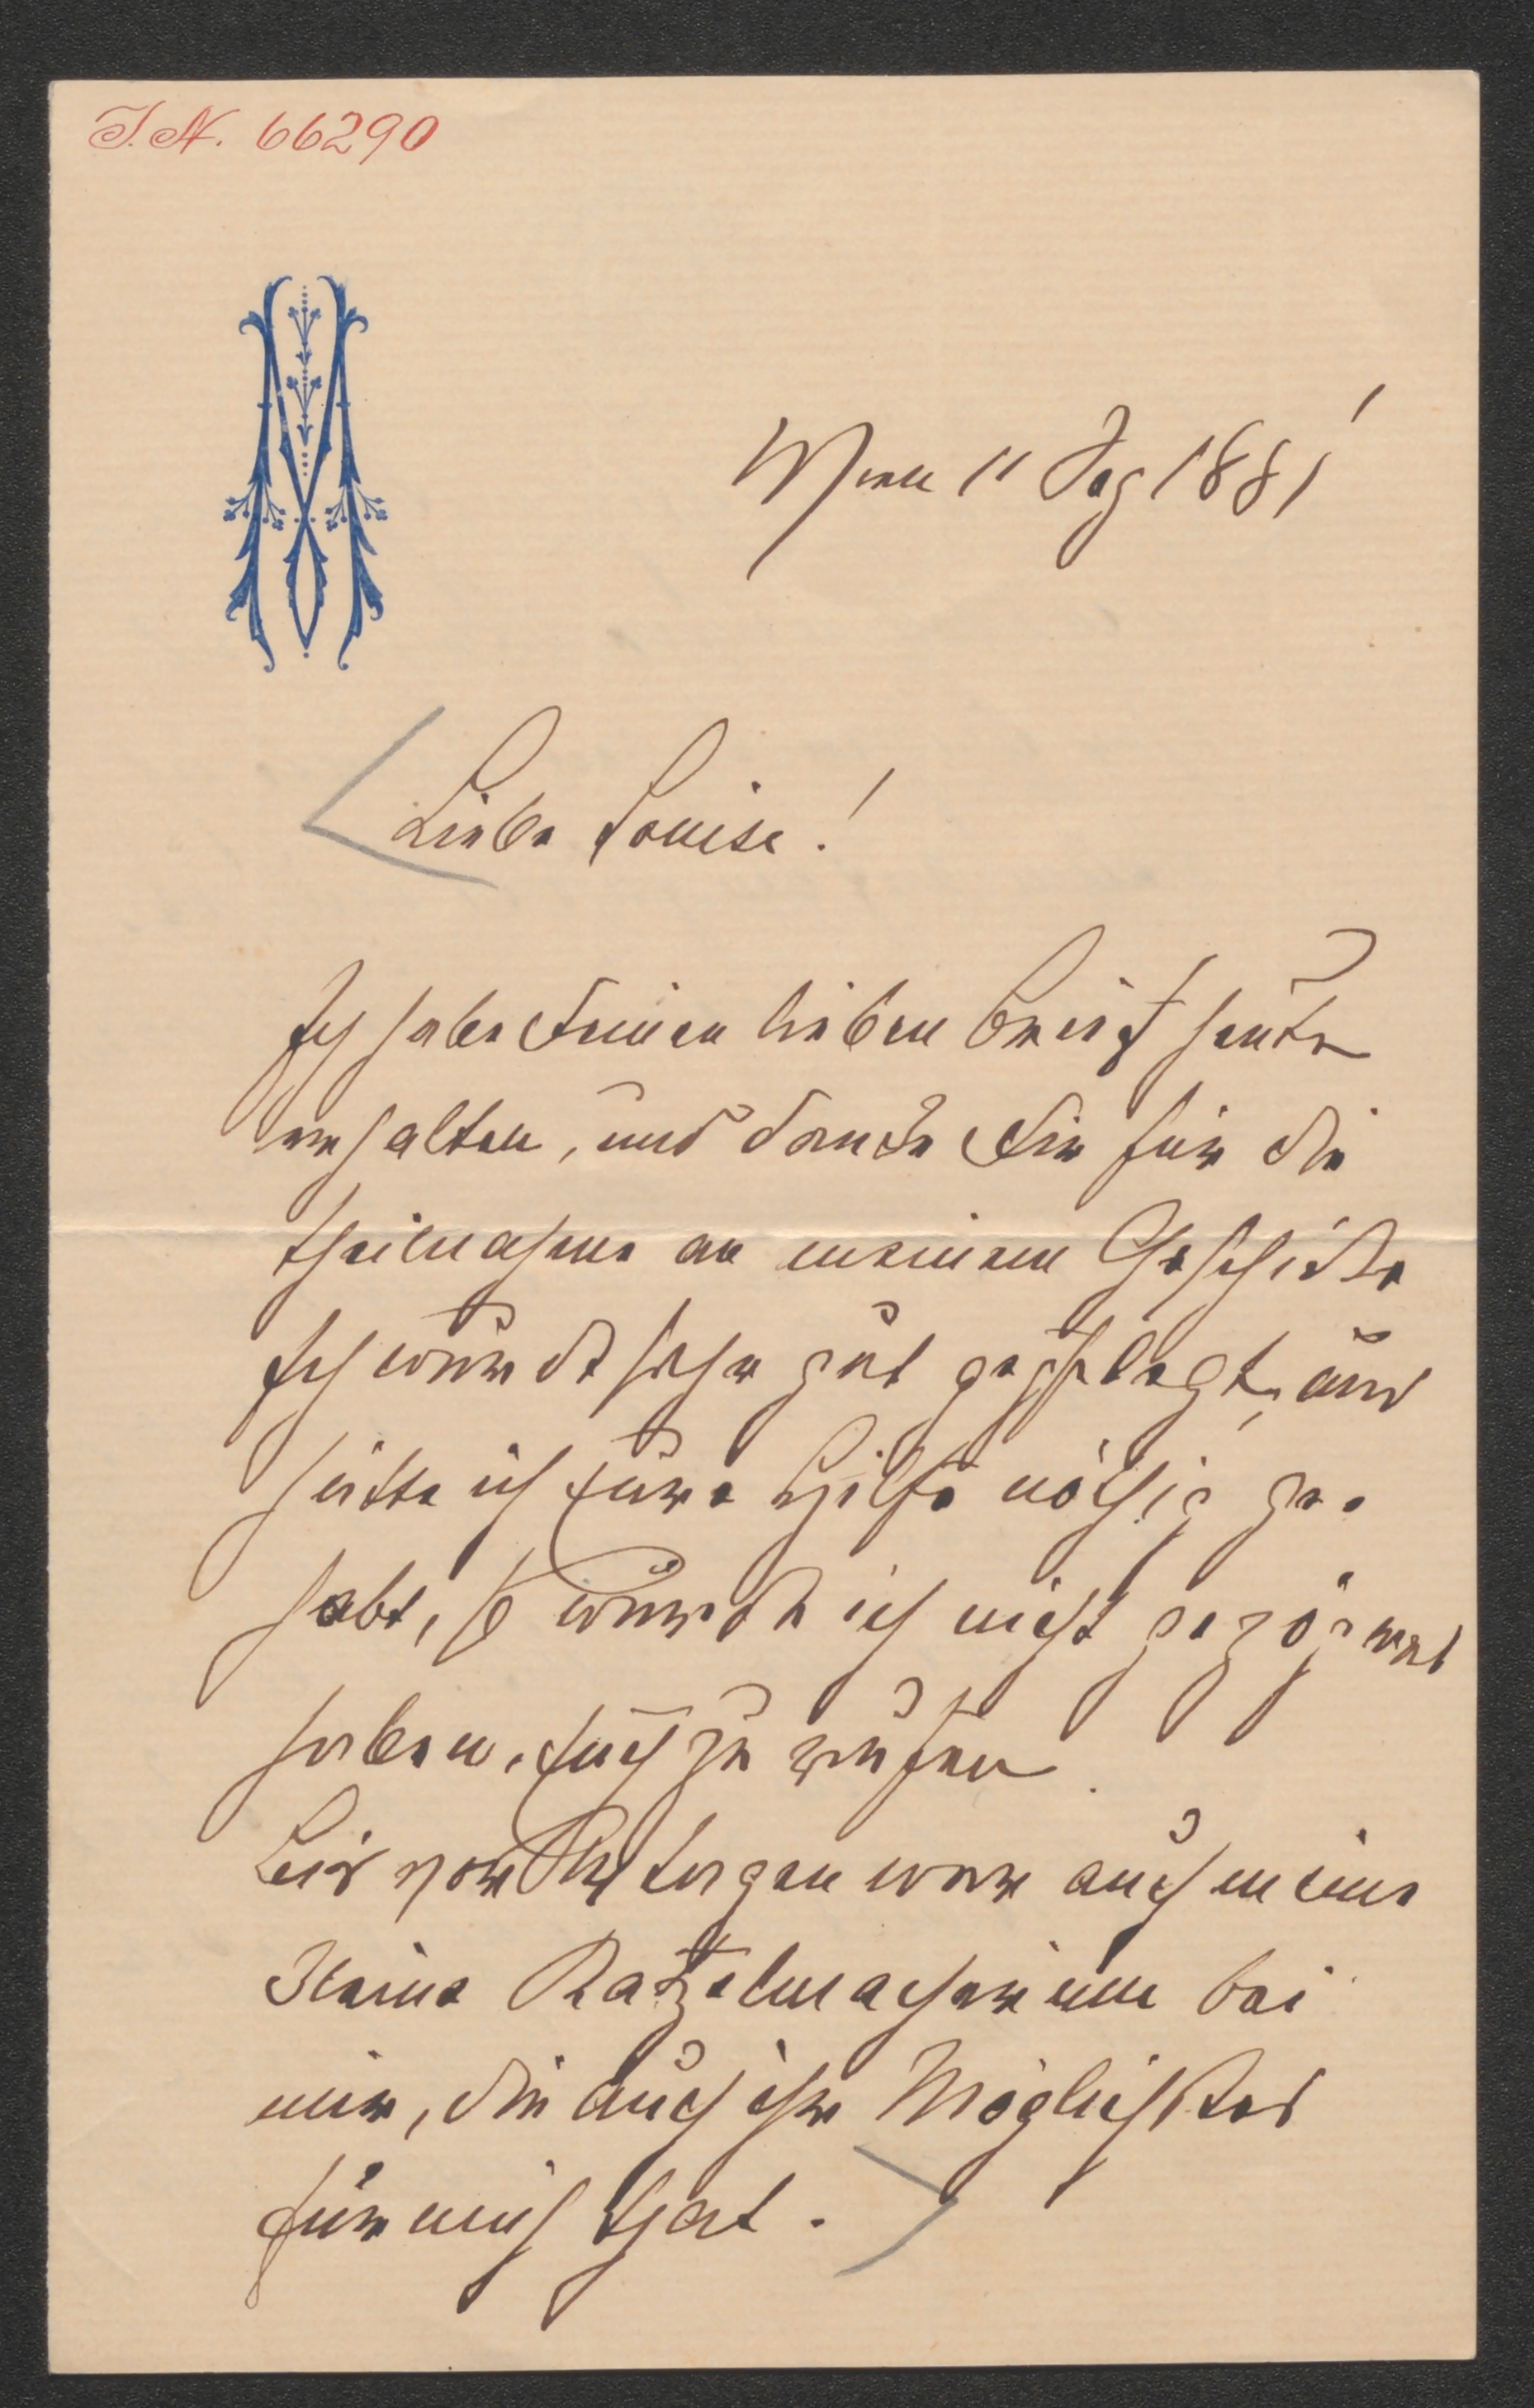 I.N. 66290
Wien 11 Sep 1881
Liebe Louise!
Ich habe Deinen lieben Brief heute
erhalten, und danke Dir für die
theilnahme an meinem Geschicke
Ich wurde sehr gut gepflegt, und
hätte ich Eure Hilfe nöthig ge-
habt, so würde ich nicht gezögert
haben, Euch zu rufen.
Bis vor 14 tagen war auch meine
kleine Katzelmacherinn bei
mir, die auch ihr Möglichstes
für mich that.